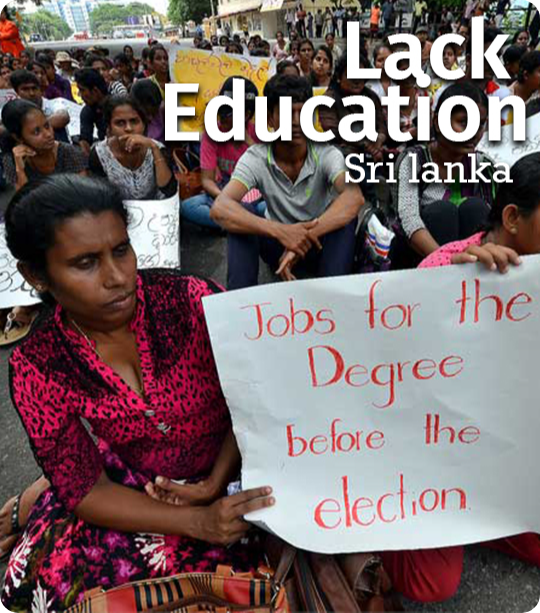 Lack
Education
Sri lanka
Jobs for the
Degree
before the
election